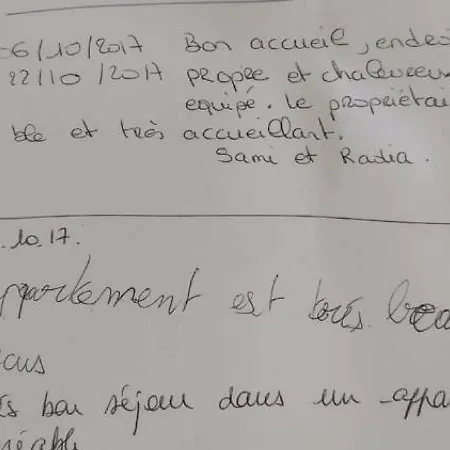 6/10/2017 Bon accueil, endro
22/10/2017 propre et chaleureu
equipé. le propriétai
ble et très accueillant.
Sami et Radia.
.10.17.
ppartement est très bea
ous
s bon séjour dans un appa
réable